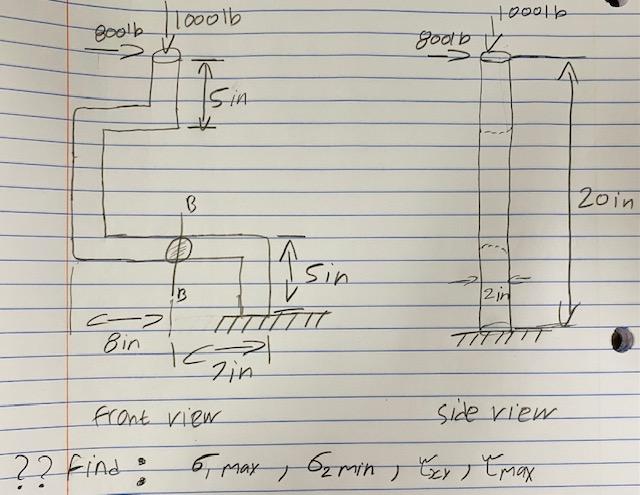 1000lb
800lb
5in
B
B
5in
8in
7in
front view
1000lb
800lb
20in
2in
side view
?? Find : σ1 max , σ2 min , τxy , τmax